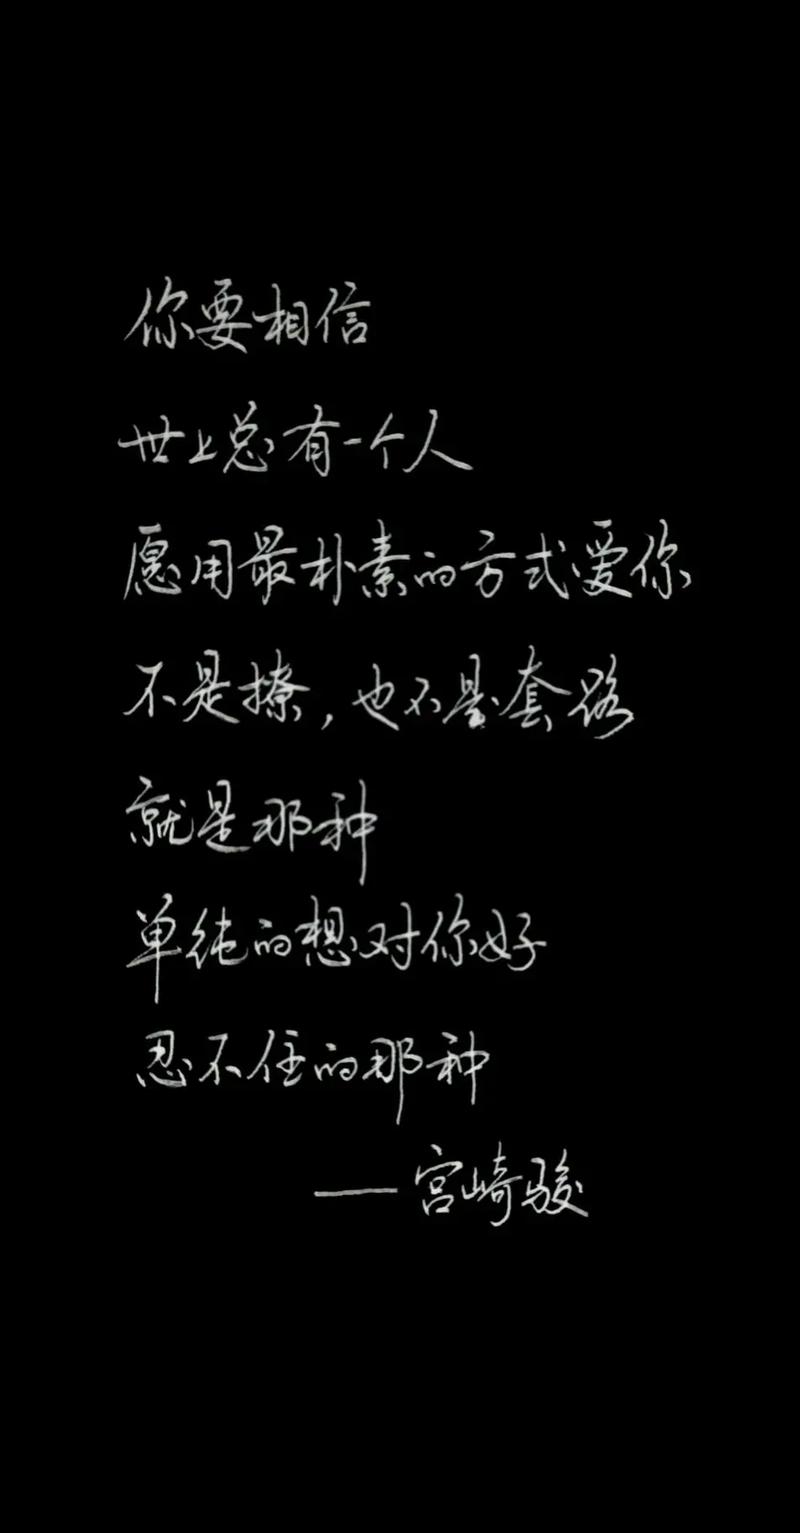 你要相信
世上总有一个人
愿用最朴素的方式爱你
不是撩，也不是套路
就是那种
单纯的想对你好
忍不住的那种
——宫崎骏